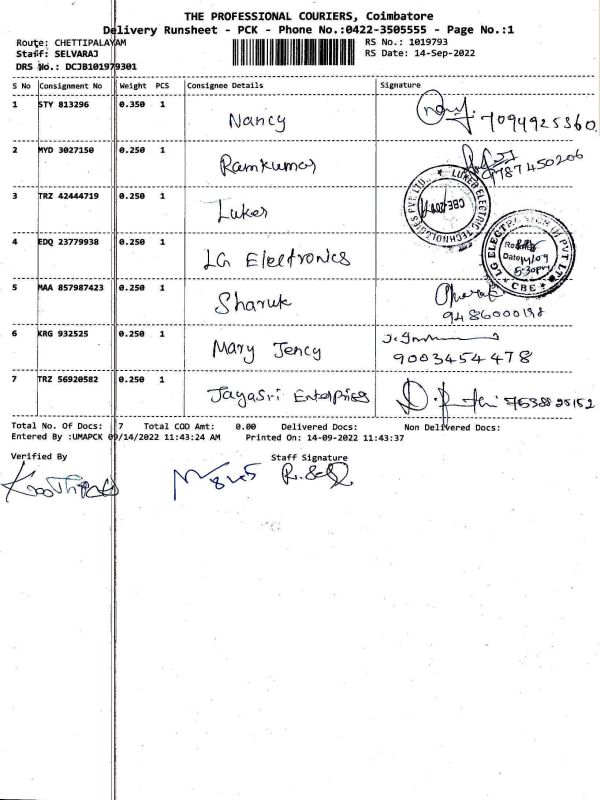 THE PROFESSIONAL COURIERS, Coimbatore
Delivery Runsheet - PCK - Phone No.:0422-3505555 - Page No.:1
Route: CHETTIPALAYAM RS No.: 1019793
Staff: SELVARAJ RS Date: 14-Sep-2022
DRS No.: DCJB101979301
S No Consignment No Weight PCS Consignee Details Signature
1 STY 813296 0.350 1 Nancy 7094925360
2 MYD 3027150 0.250 1 Ramkumar 9787450206
3 TRZ 42444719 0.250 1 Luker LUKER ELECTRIC TECHNOLOGIES PVT LTD.
4 EDQ 23779938 0.250 1 LG Electronics LG ELECTRONICS PVT LTD CBE Date 14/09 5:30pm
5 MAA 857987423 0.250 1 Sharuk 9486000198
6 KRG 932525 0.250 1 Mary Jency 9003454478
7 TRZ 56920582 0.250 1 JayaSri Enterprises
Total No. Of Docs: 7 Total COD Amt: 0.00 Delivered Docs: Non Delivered Docs:
Entered By :UMAPCK 09/14/2022 11:43:24 AM Printed On: 14-09-2022 11:43:37
Verified By Staff Signature